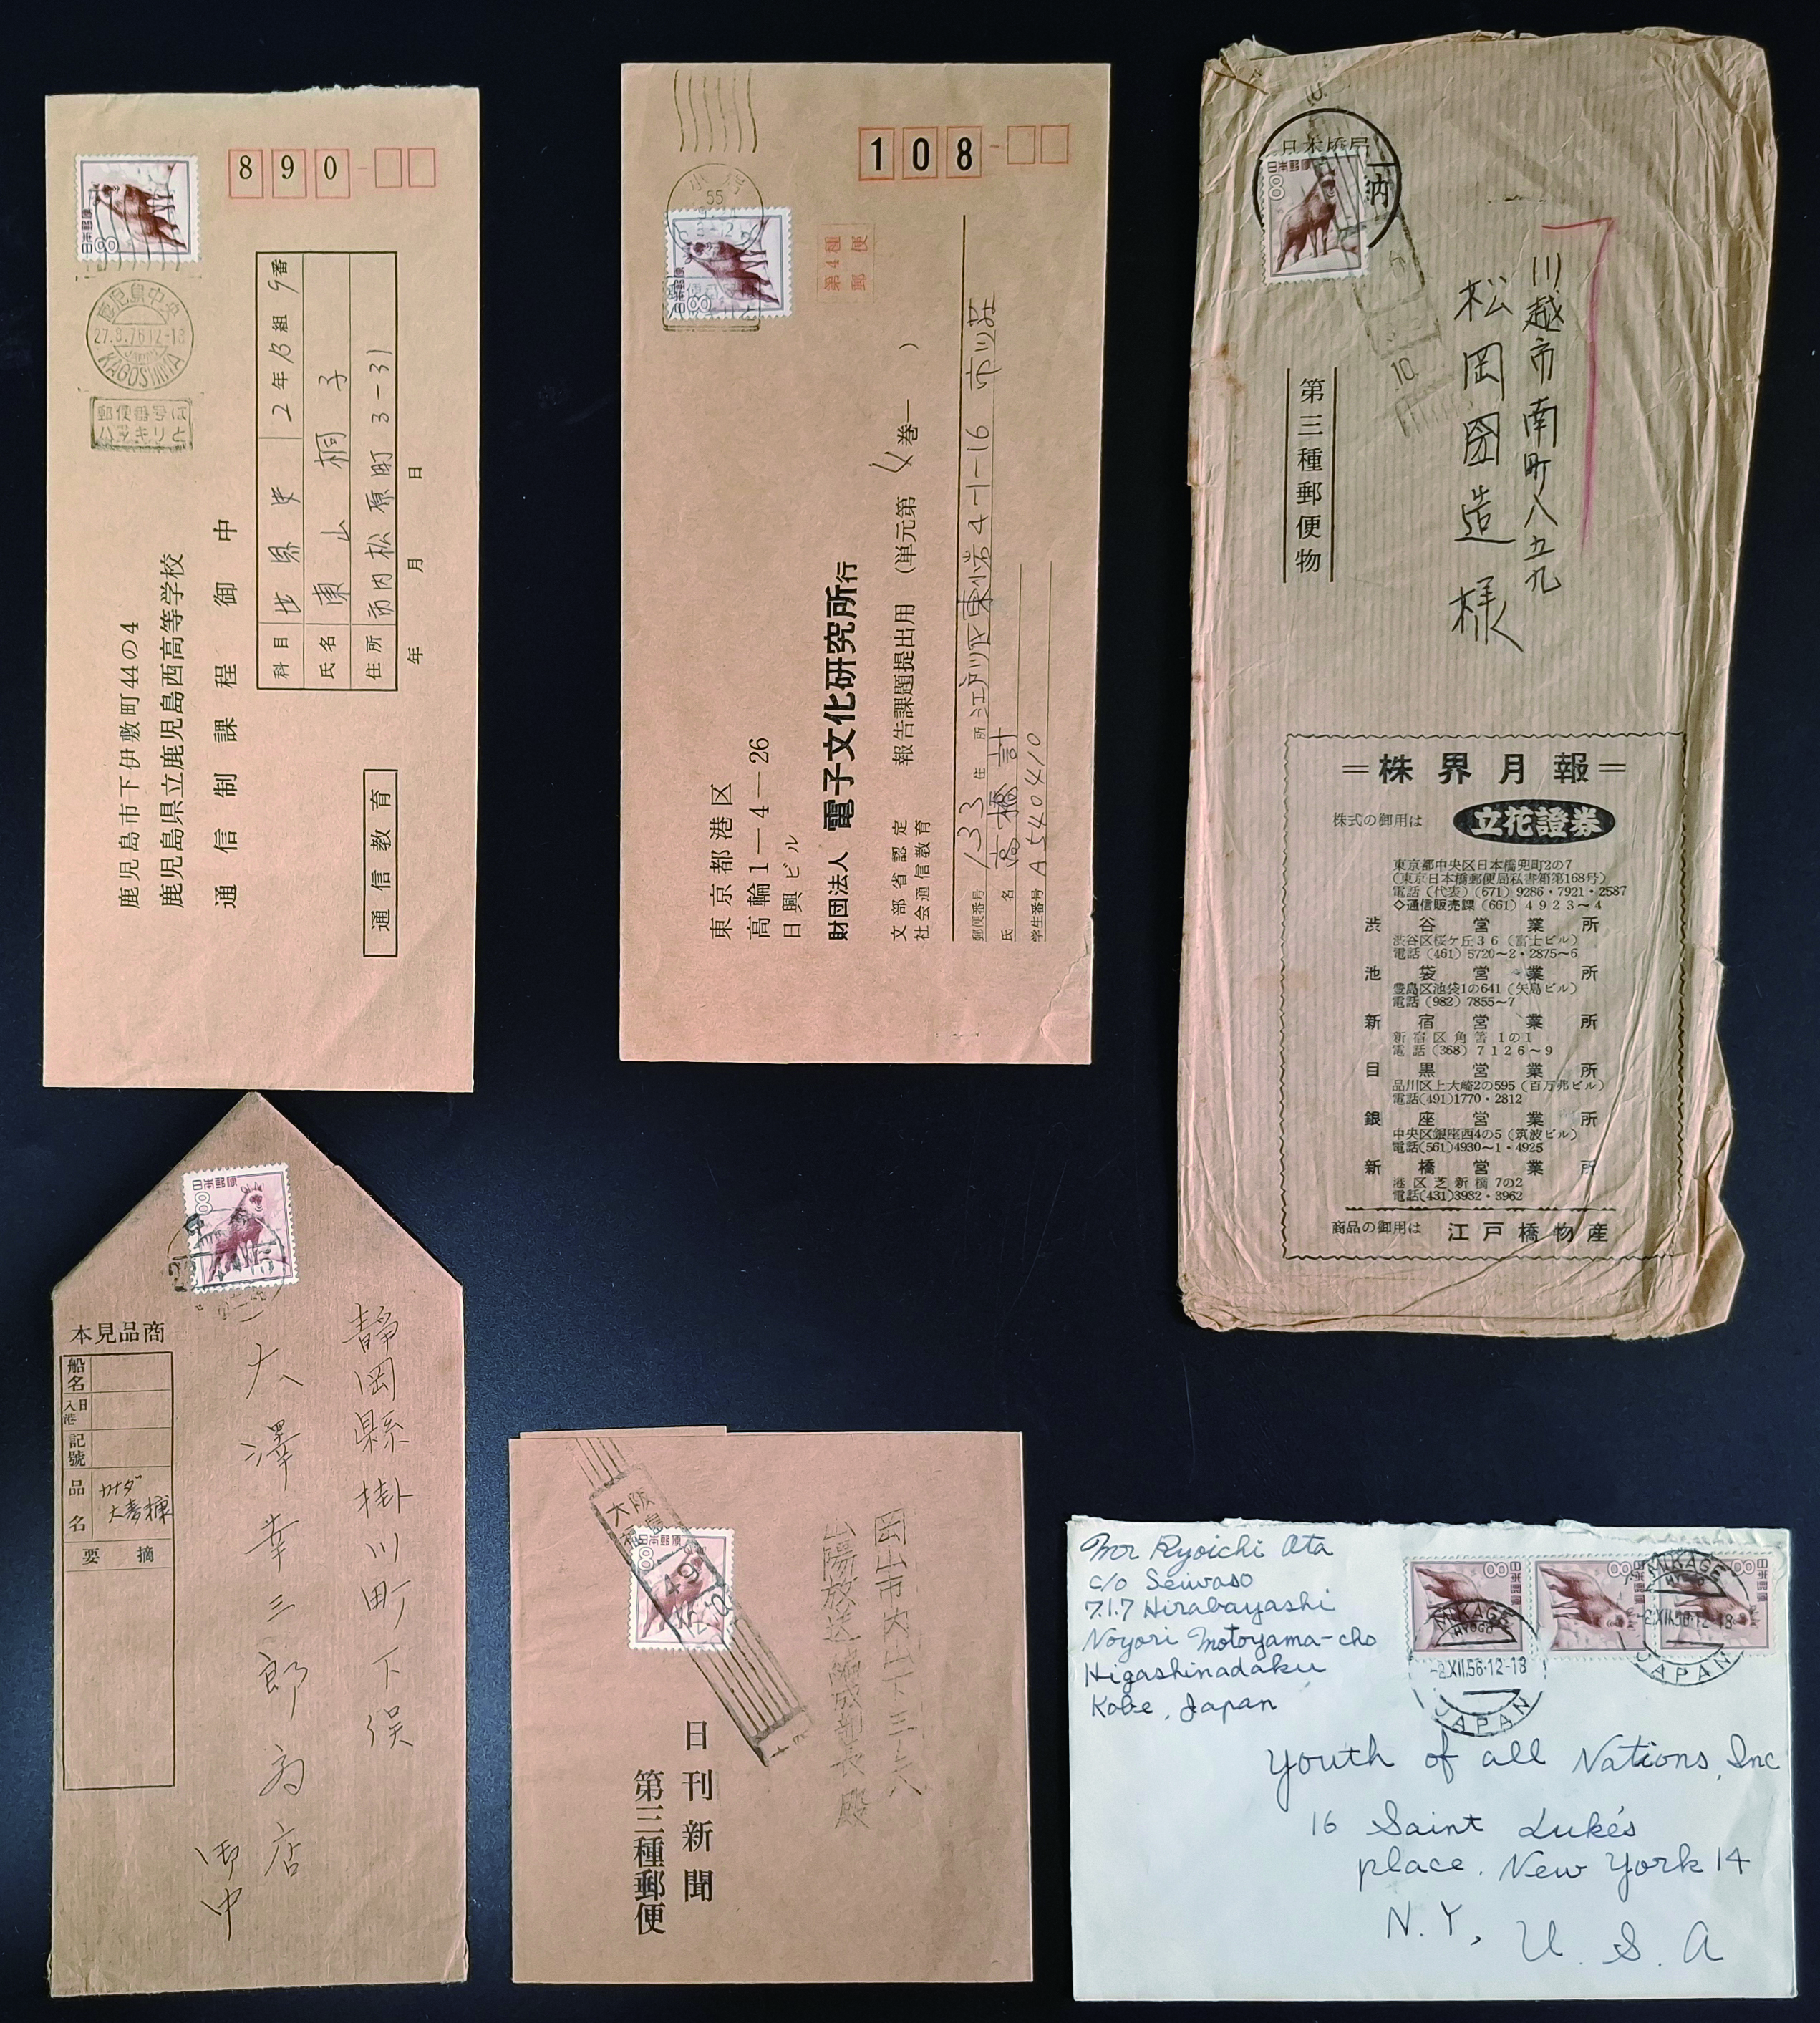 日本郵便
800
890
鹿児島中央
27.8.76 12-18
JAPAN
KAGOSHIMA
郵便番号は
ハッキリと
鹿児島市下伊敷町44の4
鹿児島県立鹿児島西高等学校
通信制課程 御中
科目 世界史 2年 組 9番
氏名 東山桐子
住所 市内松原町3-31
年 月 日
通信教育
108
55
日本郵便
第4種
郵便
東京都港区
高輪1-4-26
日興ビル
財団法人 電子文化研究所行
文部省認定
社会通信教育
報告課題提出用 (単元第 4巻— )
郵便番号 133 住所 江戸川区東小岩4-1-16 市川荘
氏名 高橋 計
学生番号 A540410
日本橋局
納
日本郵便
10.
10
川越市南町八五九
松岡囶造様
第三種郵便物
=株界月報=
株式の御用は 立花證券
東京都中央区日本橋兜町2の7
(東京日本橋郵便局私書箱第168号)
電話(代表)(671)9286・7921・2587
◇通信販売課(661)4923~4
渋谷営業所
渋谷区桜ケ丘36(富士ビル)
電話(461)5720~2・2875~6
池袋営業所
豊島区池袋1の641(矢島ビル)
電話(982)7855~7
新宿営業所
新宿区角筈1の1
電話(368)7126~9
目黒営業所
品川区上大崎2の595(百万弗ビル)
電話(491)1770・2812
銀座営業所
中央区銀座西4の5(筑波ビル)
電話(561)4930~1・4925
新橋営業所
港区芝新橋7の2
電話(431)3932・3962
商品の御用は 江戸橋物産
日本郵便
800
本見品商
船名
入港日
記號
品名 カナダ大麥樣
要摘
静岡縣掛川町下俣
大澤幸三郎商店
御中
大阪
福島
日本郵便
800
49
岡山市丸の内
山陽放送編成部長殿
日刊新聞
第三種郵便
Mr Ryoichi Ota
c/o Seiwaso
7.1.7 Hirabayashi
Noyori Motoyama-cho
Higashinadaku
Kobe, Japan
日本郵便
800
日本郵便
800
日本郵便
800
MIKAGE
HYOGO
-2.XII.56.12-18
JAPAN
MIKAGE
HYOGO
-2.XII.56.12-18
JAPAN
Youth of all Nations, Inc
16 Saint Luke's
place. New York 14
N.Y, U.S.A